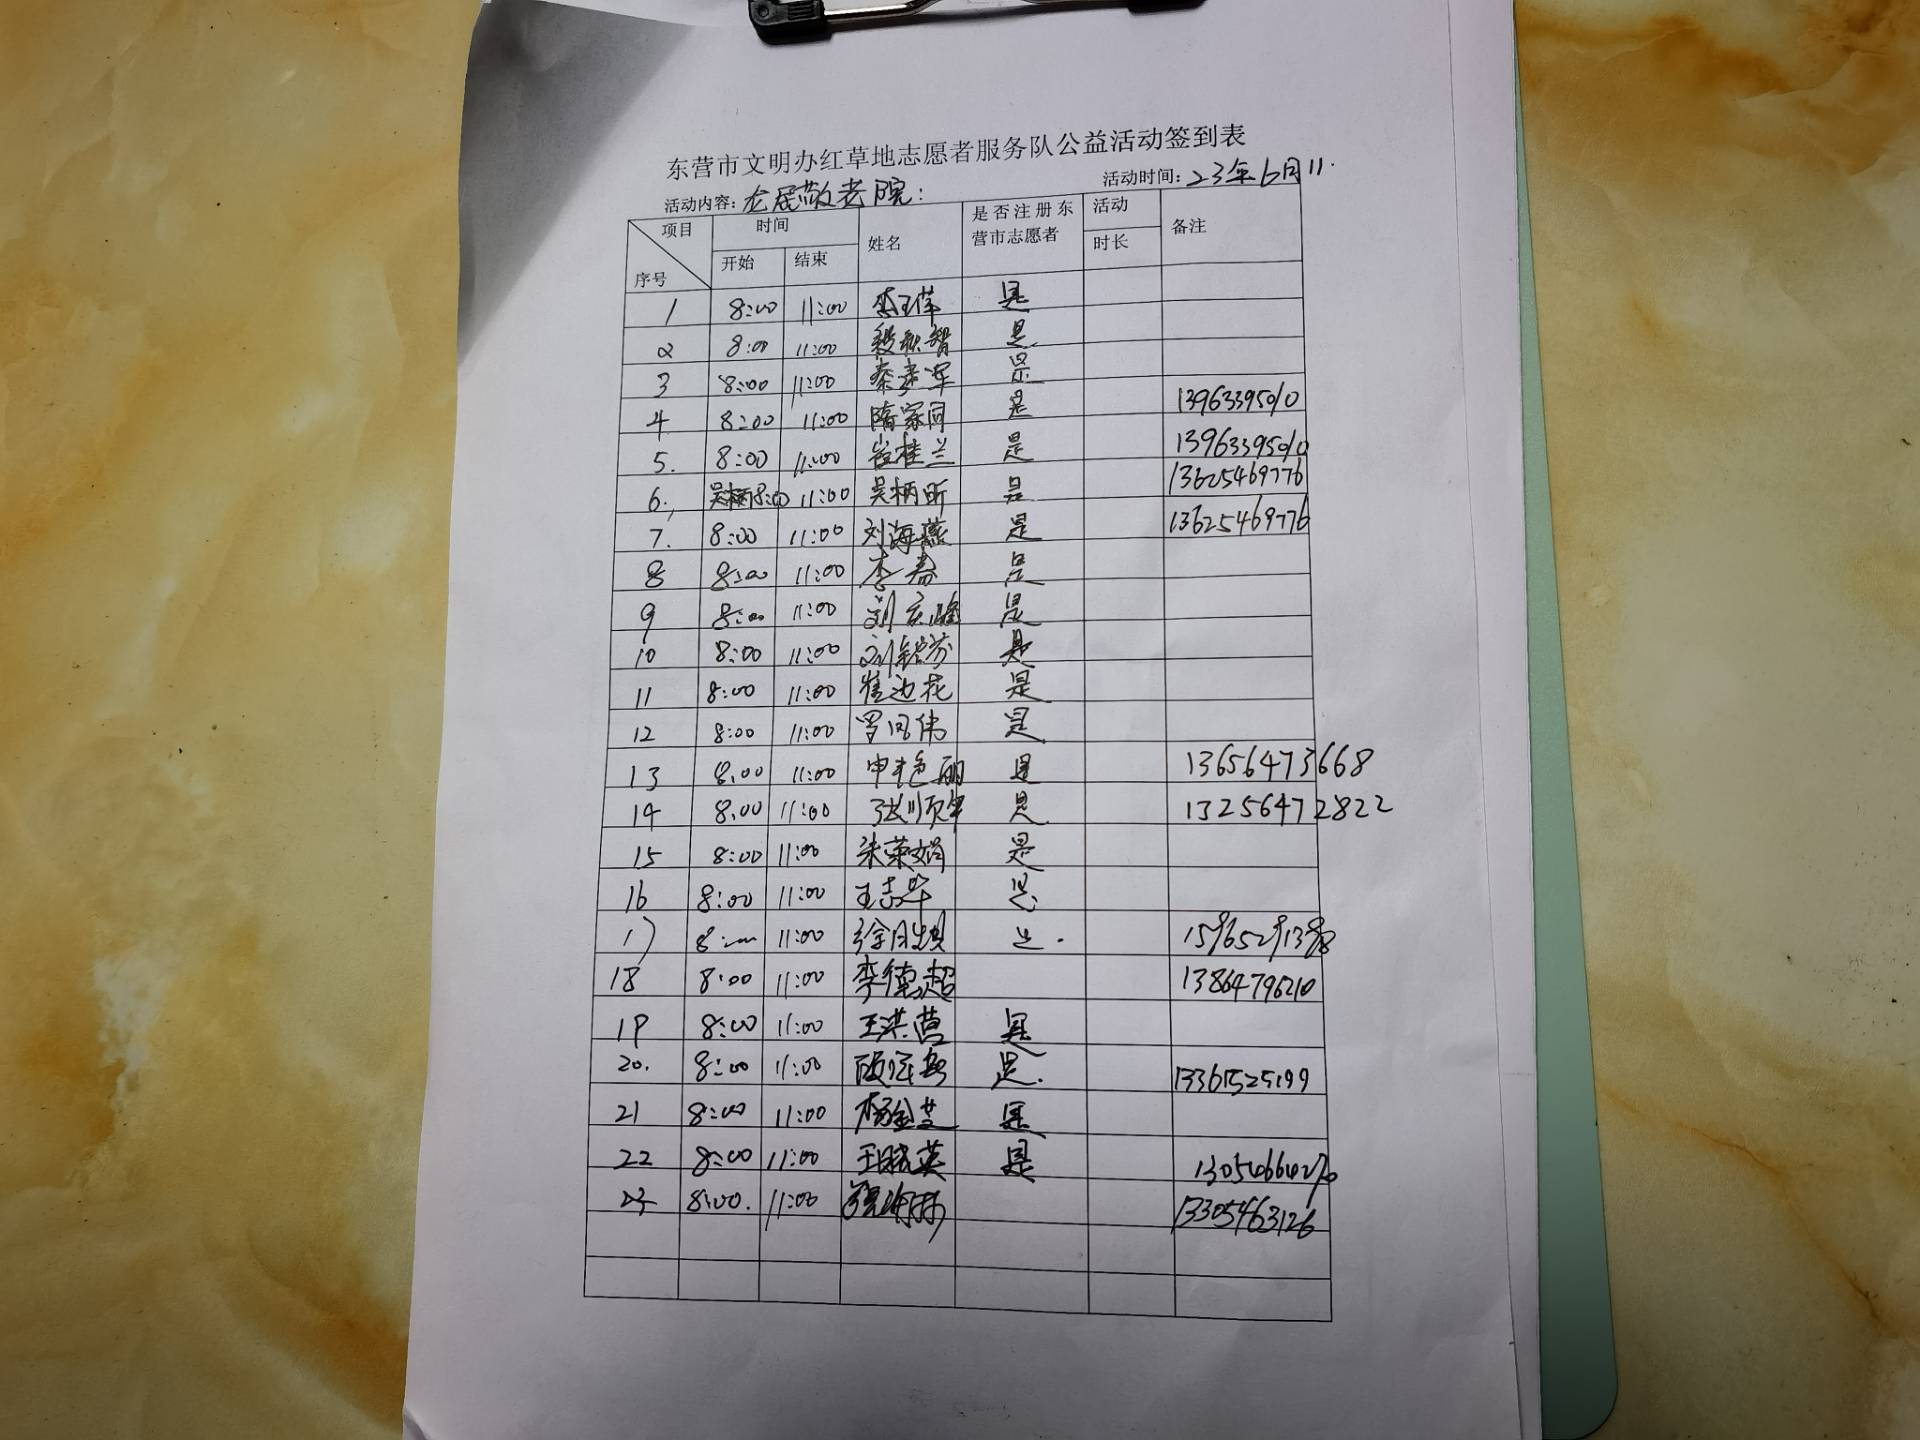 东营市文明办红草地志愿者服务队公益活动签到表
活动内容: 敬老院: 活动时间: 23年6月11.
项目 序号 时间 开始 结束 姓名 是否注册东营市志愿者 活动时长 备注
1 8:00 11:00 是
2 8:00 11:00 是
3 8:00 11:00 是
4 8:00 11:00 隋家同 是 13963395010
5. 8:00 11:00 崔桂兰 是 13963395010
6. 吴柄 8:00 11:00 吴柄昕 是 13625469776
7. 8:00 11:00 刘海燕 是 13625469776
8 8:00 11:00 是
9 8:00 11:00 是
10 8:00 11:00 是
11 8:00 11:00 崔迎花 是
12 8:00 11:00 是
13 8:00 11:00 申艳丽 是 13656473668
14 8:00 11:00 是 13256472822
15 8:00 11:00 朱荣娟 是
16 8:00 11:00 王志华 是
17 8:00 11:00 是. 15965291398
18 8:00 11:00 李德超 13864796210
19 8:00 11:00 王洪营 是
20. 8:00 11:00 是. 13361525199
21 8:00 11:00 杨金芝 是
22 8:00 11:00 是
23 8:00. 11:00 13305463126